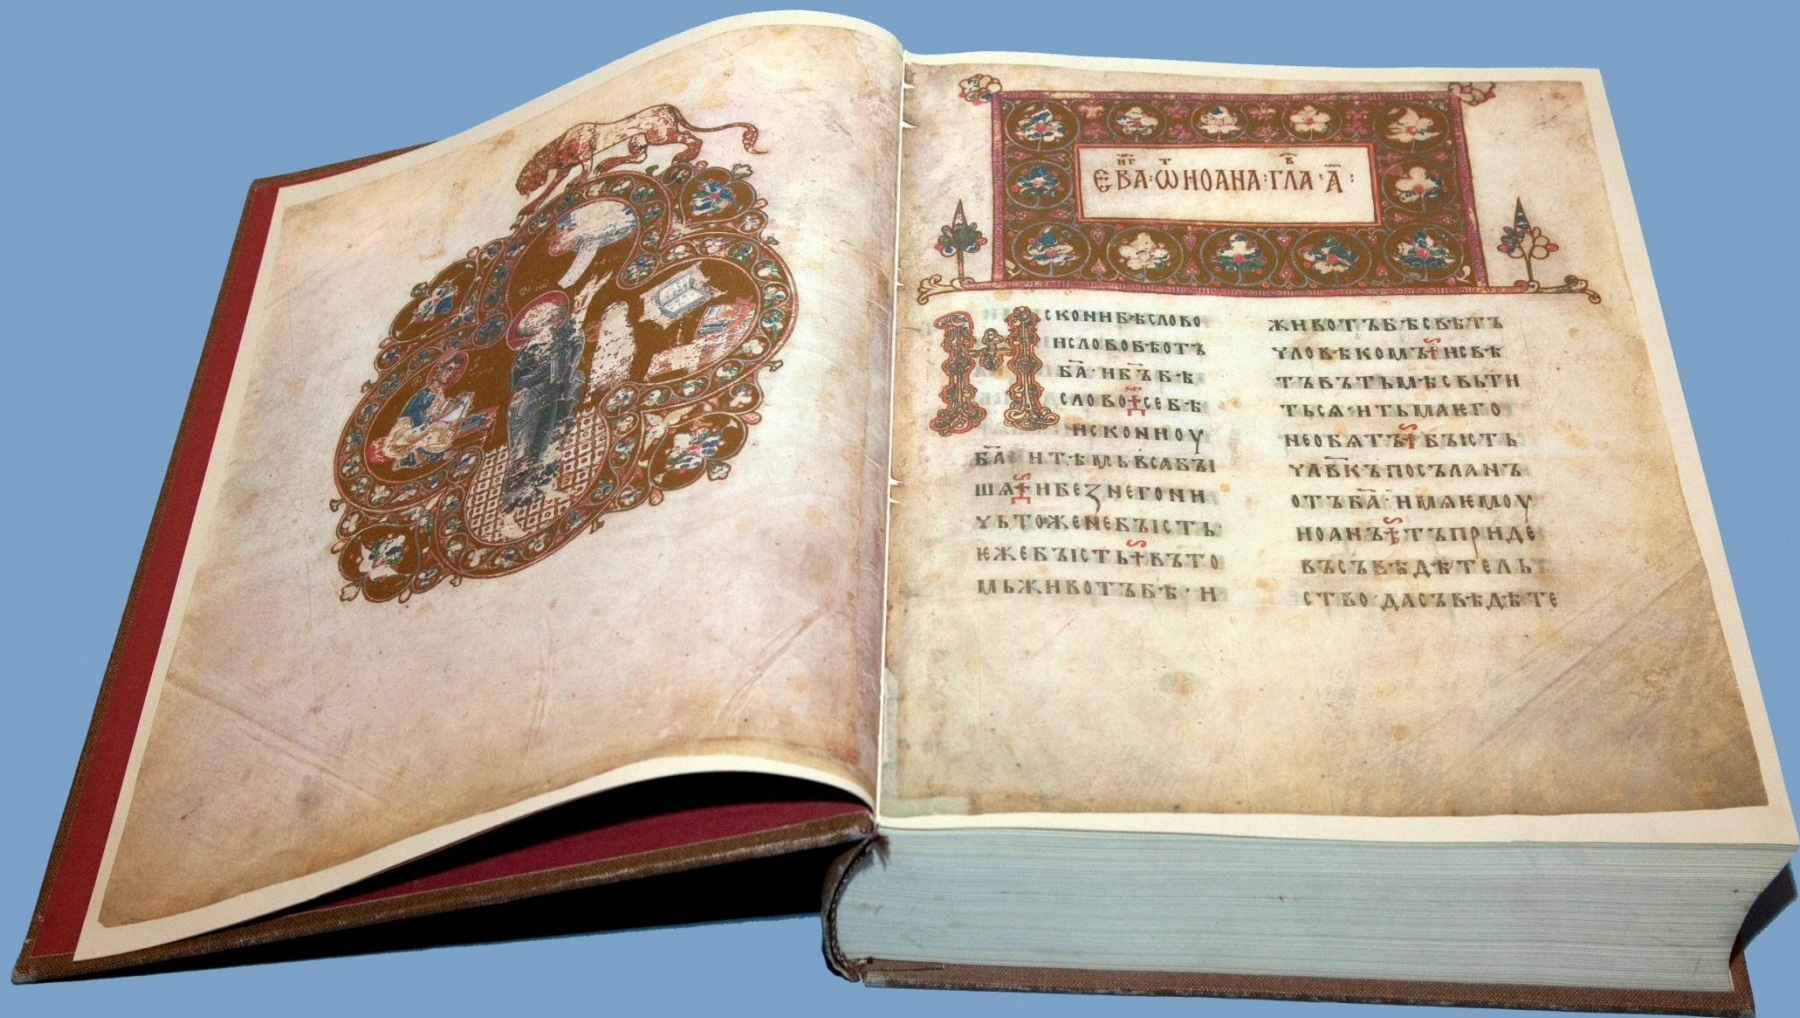 ЕВАⷩ҇Гⷢ·Ѿ ИОАНА·ГЛАⷡ·А҃:
ИСКОНИБѢСЛОВО
ИСЛОВОБѢОТЪ
БА҃·ИБЪ҃БѢ
СЛОВО СЕБѢ
ИСКОНИОУ
БА҃·ИТѢМЬВСѦБЫ
ШѦ ИБЕЗНЕГОНИ
ЧЬТОЖЕНЕБЪІСТЬ·
ѤЖЕБЪІСТЬ ВЪТО
МЬЖИВОТЪБѢ·И
ЖИВОТЪБѢСВѢТЪ
ЧЛОВѢКОМЪ ИСВѢ
ТЪВЪТЬМѢСВЬТИ
ТЬСѦ·ИТЬМАѤГО
НЕОБѦТЪ БЪІСТЬ
ЧЛВ҃КЪПОСЪЛАНЪ
ОТЪБА҃·ИМѦѤМОУ
ИОАНЪ ТЪПРИДЕ
ВЪСЪВѢДѢТЕЛЬ
СТВО·ДАСЪВѢДѢТЕ